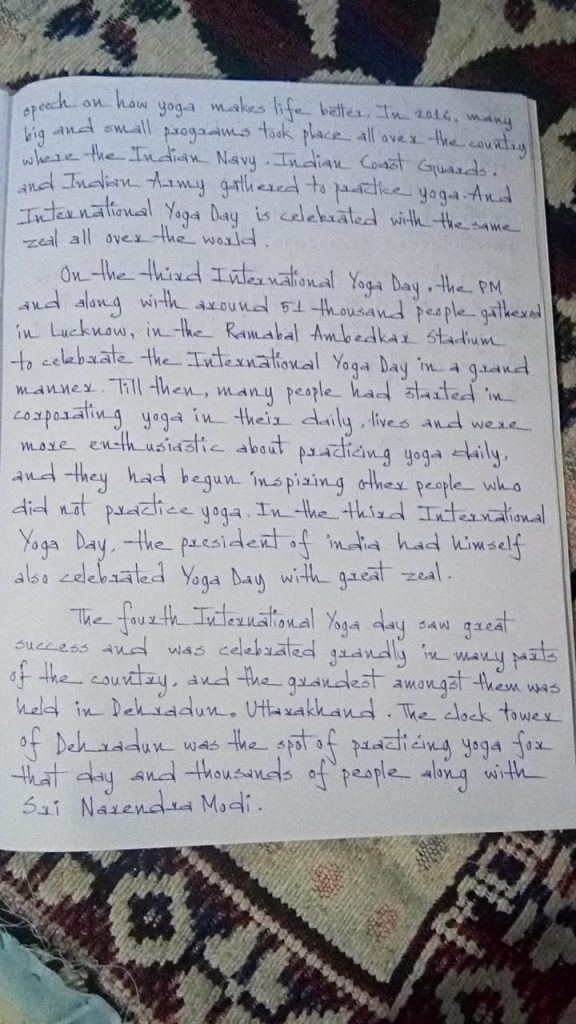 speech on how yoga makes life better. In 2016, many
big and small programs took place all over the country
where the Indian Navy, Indian Coast Guards,
and Indian Army gathered to practice yoga. And
International Yoga Day is celebrated with the same
zeal all over the world.
On the third International Yoga Day, the PM
and along with around 51 thousand people gathered
in Lucknow, in the Ramabal Ambedkar Stadium
to celebrate the International Yoga Day in a grand
manner. Till then, many people had started in
corporating yoga in their daily, lives and were
more enthusiastic about practicing yoga daily,
and they had begun inspiring other people who
did not practice yoga. In the third International
Yoga Day, the president of india had himself
also celebrated Yoga Day with great zeal.
The fourth International Yoga day saw great
success and was celebrated grandly in many parts
of the country, and the grandest amongst them was
held in Dehradun, Uttarakhand. The clock tower
of Dehradun was the spot of practicing yoga for
that day and thousands of people along with
Sri Narendra Modi.